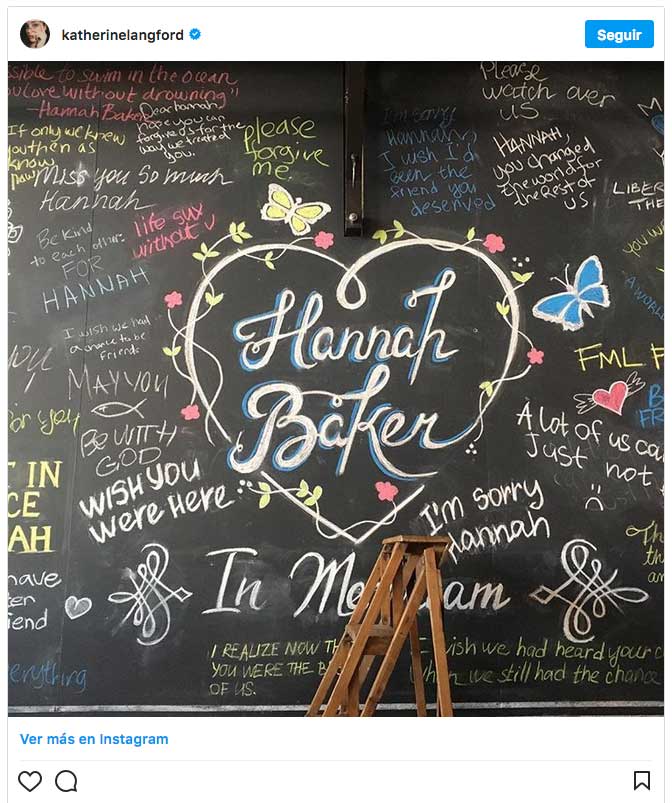 katherinelangford
Seguir
ssible to swim in the ocean
u love without drowning"
—Hannah Baker
Dear hannah,
hope you can
forgive us for the
way we treated
you.
If only we knew
you then as
know
now
please
forgive
me.
I'm sorry
Hannah,
I wish I'd
been the
friend you
deserved
Please
watch over
us
HANNAH,
you changed
the world for
the rest of
us
LIBER
THE
Miss you so much
Hannah
life sux
without u
Be kind
to each other.
FOR
HANNAH
I wish we had
a chance to be
friends
MAY YOU
BE WITH
GOD
WISH YOU
Were Here
Hannah
Baker
you w
A WORL
FML F
B
FR
A lot of us ca
Just not
I'm sorry
Hannah
or you
T IN
CE
AH
have
ter
iend
erything
In Me am
Th
th
an
I REALIZE NOW TH
YOU WERE THE B
OF US.
I wish we had heard your c
when we still had the chance
Ver más en Instagram